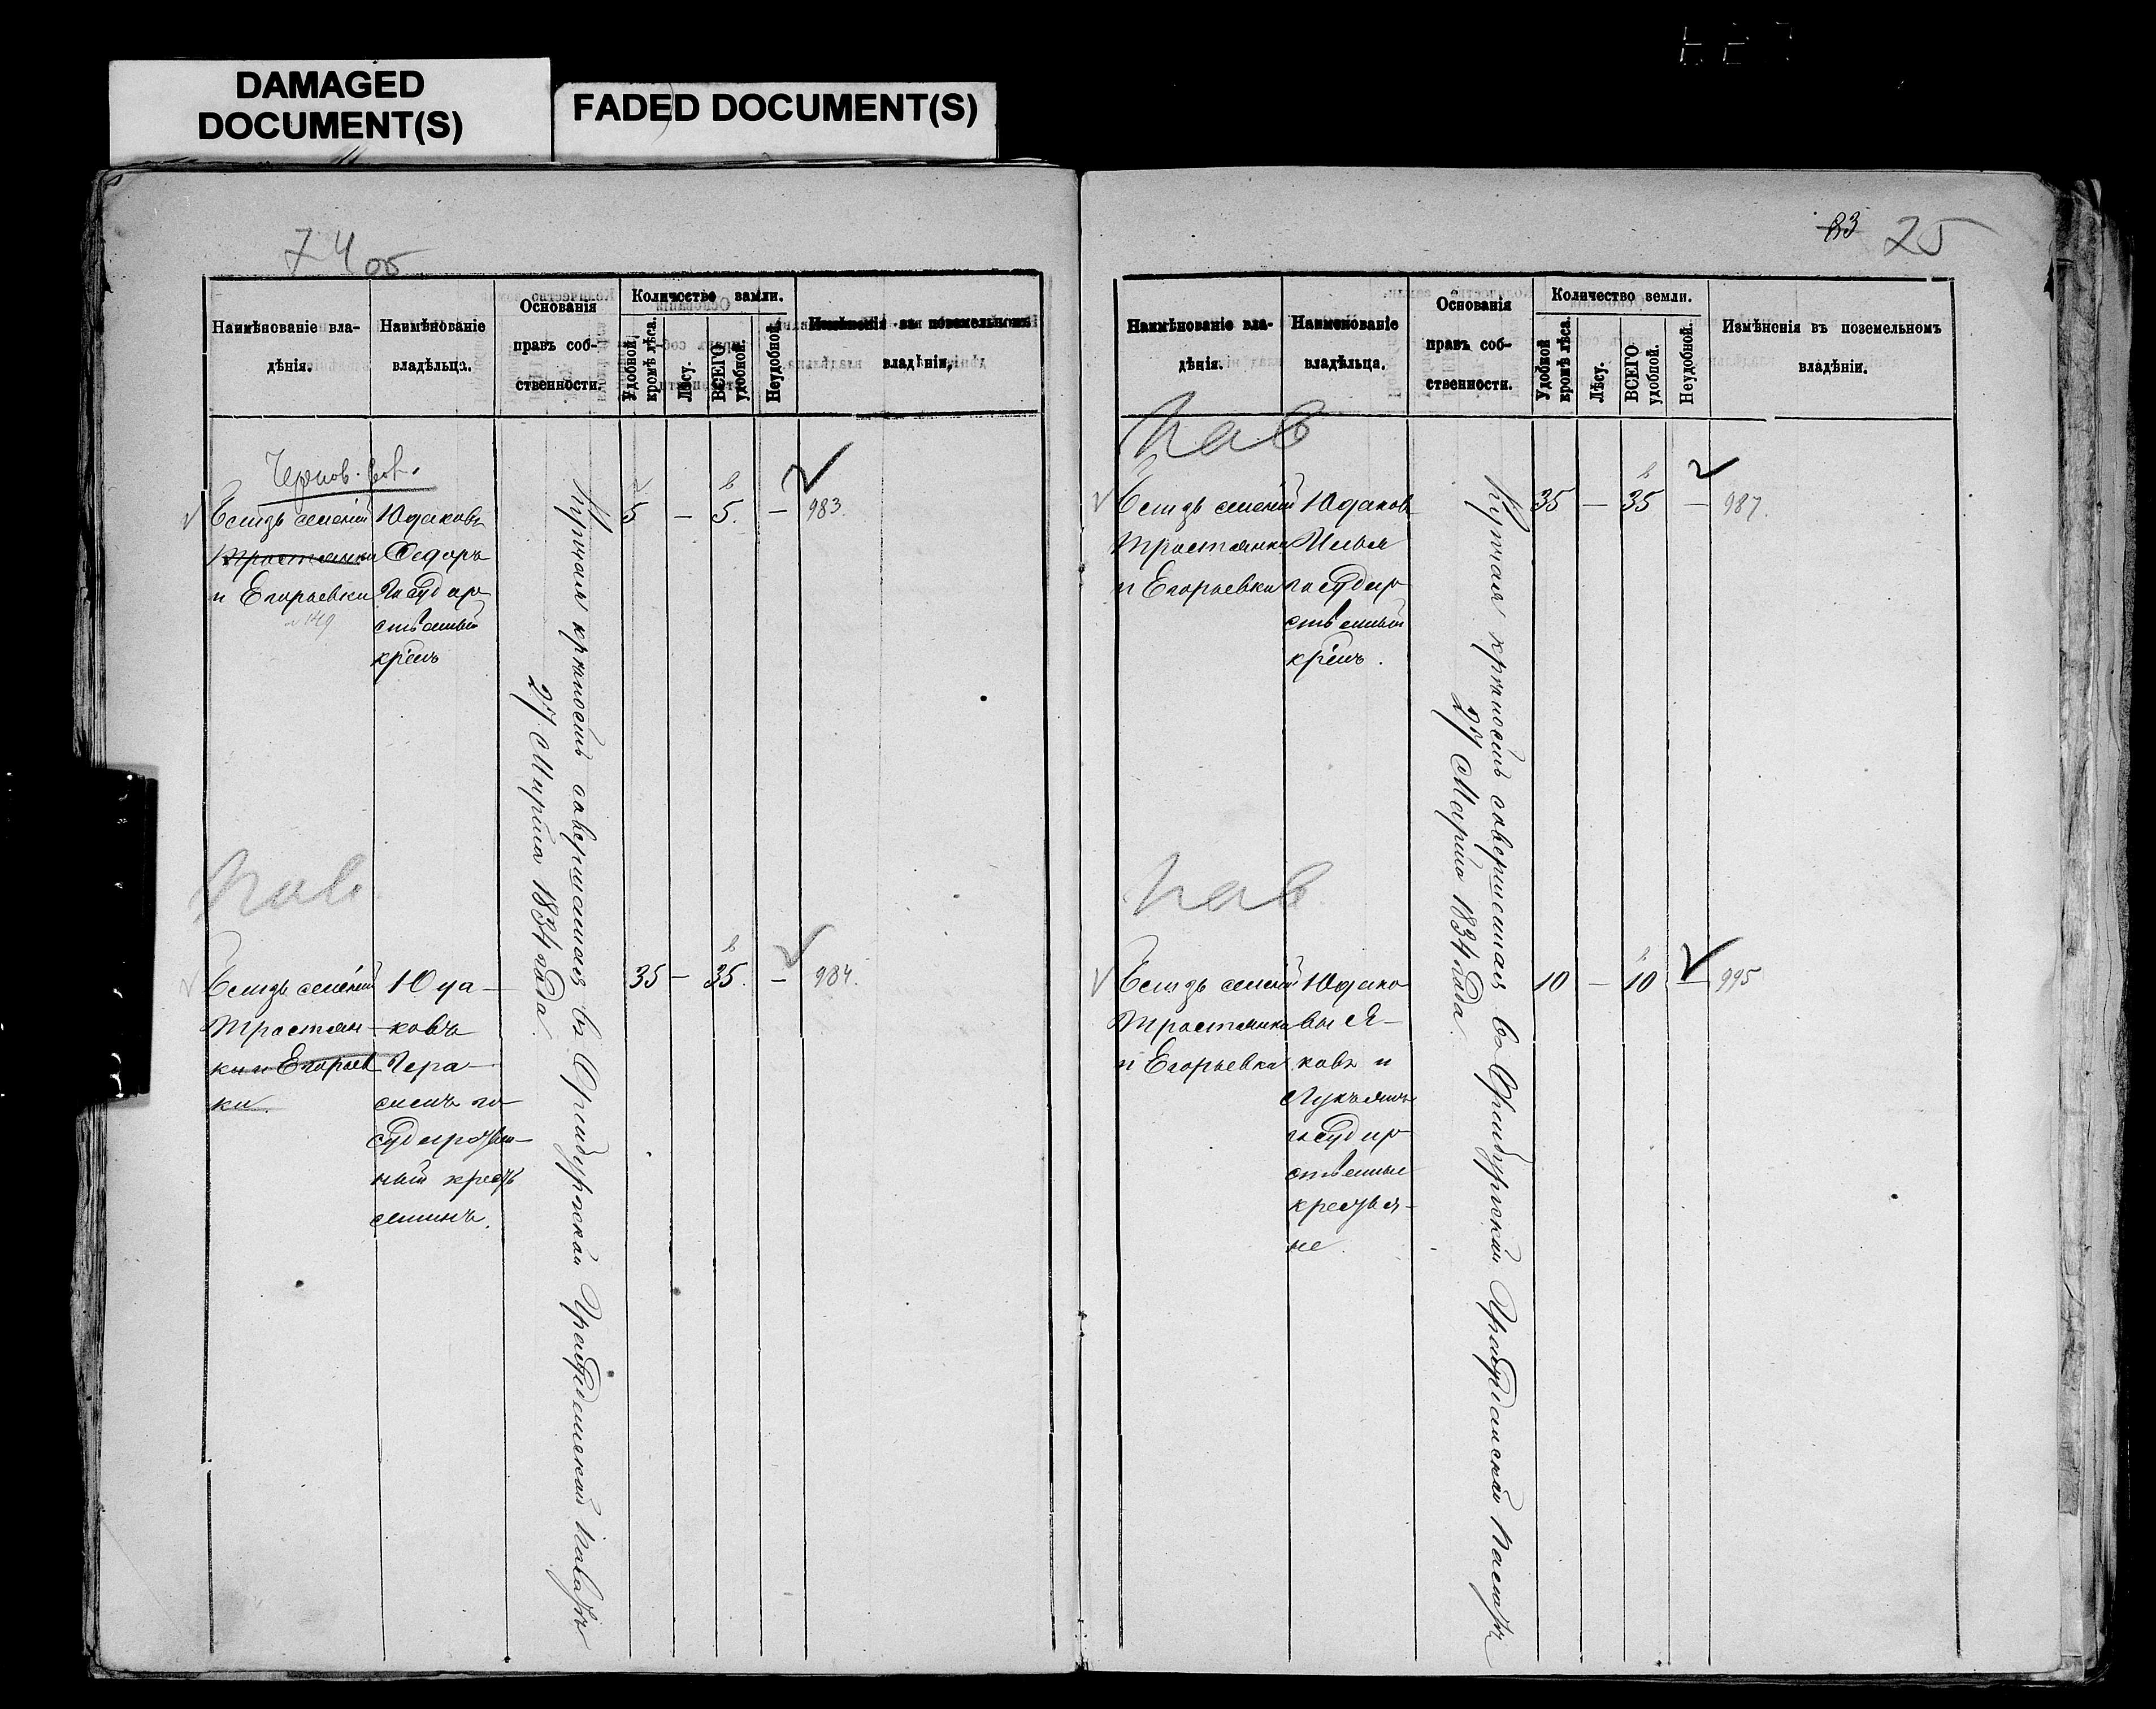 DAMAGED
DOCUMENT(S)
FADED DOCUMENT(S)
74 об
Наимѣнованіе вла-
дѣнія.
Наимѣнованіе
владѣльца.
Основанія
правъ соб-
ственности.
Количество земли.
Удобной,
кромѣ лѣса.
Лѣсу.
ВСЕГО
удобной.
Неудобной.
Измѣненія въ поземельномъ
владѣніи.
Близь селеній
Тростянки
и Егорьевки
149
Юдаковъ
Ѳедоръ
государ
ственный
кр-нъ
Купчая крѣпость совершенная въ Оренбургской Гражданской Палатѣ
27 Марта 1834 года.
5 — 5. — 983.
Пав
Близь селеній
Тростян-
ки и Егорьев
ки.
Юда-
ковъ
Гера-
симъ го-
сударствен-
ный кресть
янинъ.
35 — 35. — 984.
83 25
Наимѣнованіе вла-
дѣнія.
Наименованіе
владѣльца.
Основанія
правъ соб-
ственности.
Количество земли.
Удобной
кромѣ лѣса.
Лѣсу.
ВСЕГО
удобной.
Неудобной.
Измѣненія въ поземельномъ
владѣніи.
Пав
Близь селеній
Тростянки
и Егорьевки
Юдаковъ
Илья
государ
ственный
кр-нъ.
Купчая крѣпость совершенная въ Оренбургской Гражданской Палатѣ
27 Марта 1834 года.
35 — 35 — 987.
Пав
Близь селеній
Тростянки
и Егорьевки
Юдако
вы Я-
ковъ и
Лукъянъ
государ
ственные
крестья-
не.
10 — 10 — 995